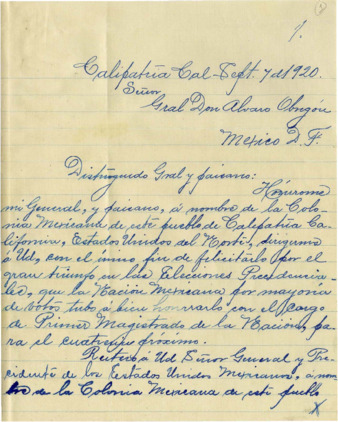 1.
Calipatria Cal- Sept. 7 de 1920.
Señor
Gral Don Alvaro Obregón
Mexico D. F.
Distinguido Gral y paisano:
Hónrome
mi General, y paisano, á nombre de la Colo-
nia Mexicana de este pueblo de Calipatria Ca-
lifornia, Estados Unidos del Norte, dirigirme
á Ud, con el único fin de felicitarlo por el
gran triunfo en las Elecciones Presidencia-
les, que la Nación Mexicana por mayoria
de votos tubo á bien honrarlo con el cargo
de Primer Magistrado de la Nación, pa-
ra el cuatrienio próximo.
Reitero á Ud Señor General y Pre-
cidente de los Estados Unidos Mexicanos, á nom-
bre de la Colonia Mexicana de este pueblo